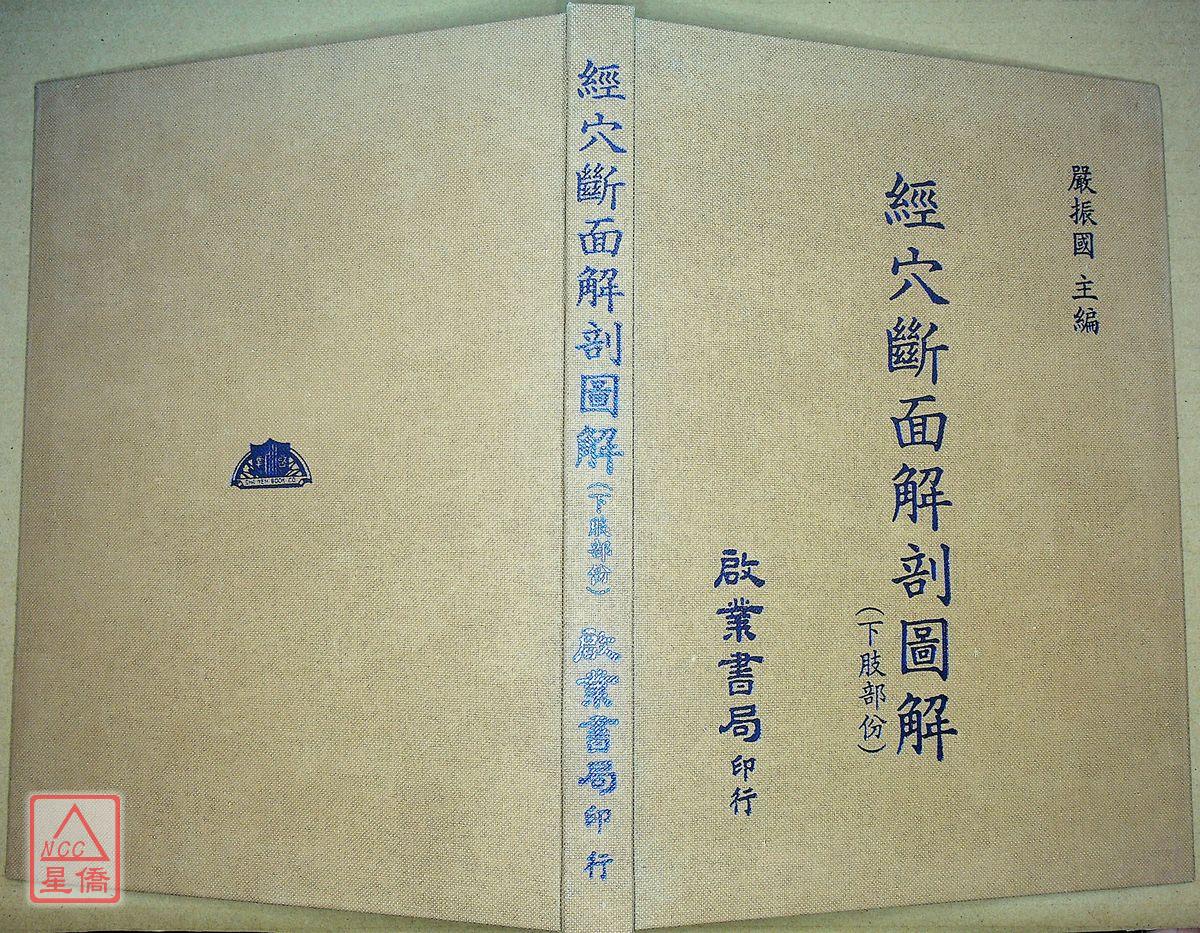 嚴振國 主編
經穴斷面解剖圖解
(下肢部份)
啟業書局印行
經穴斷面解剖圖解(下肢部份) 啟業書局印行
BOOK CO.
NCC
星僑